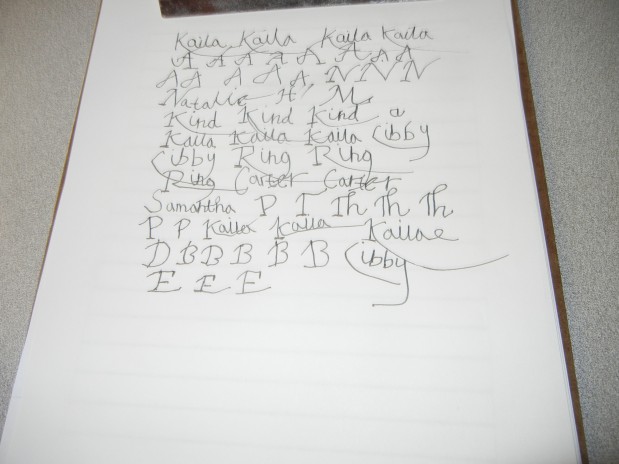 Kaila Kaila Kaila Kaila
A A A A A A A A
A A A A A N N N
Natalie H M
Kind Kind Kind a
Kaila Kaila Kaila Cibby
Cibby Ring Ring
Ring Carter Carter
Samantha P I Th Th Th
P P Kaila Kaila Kailae
D B B B B B Cibby
E E E